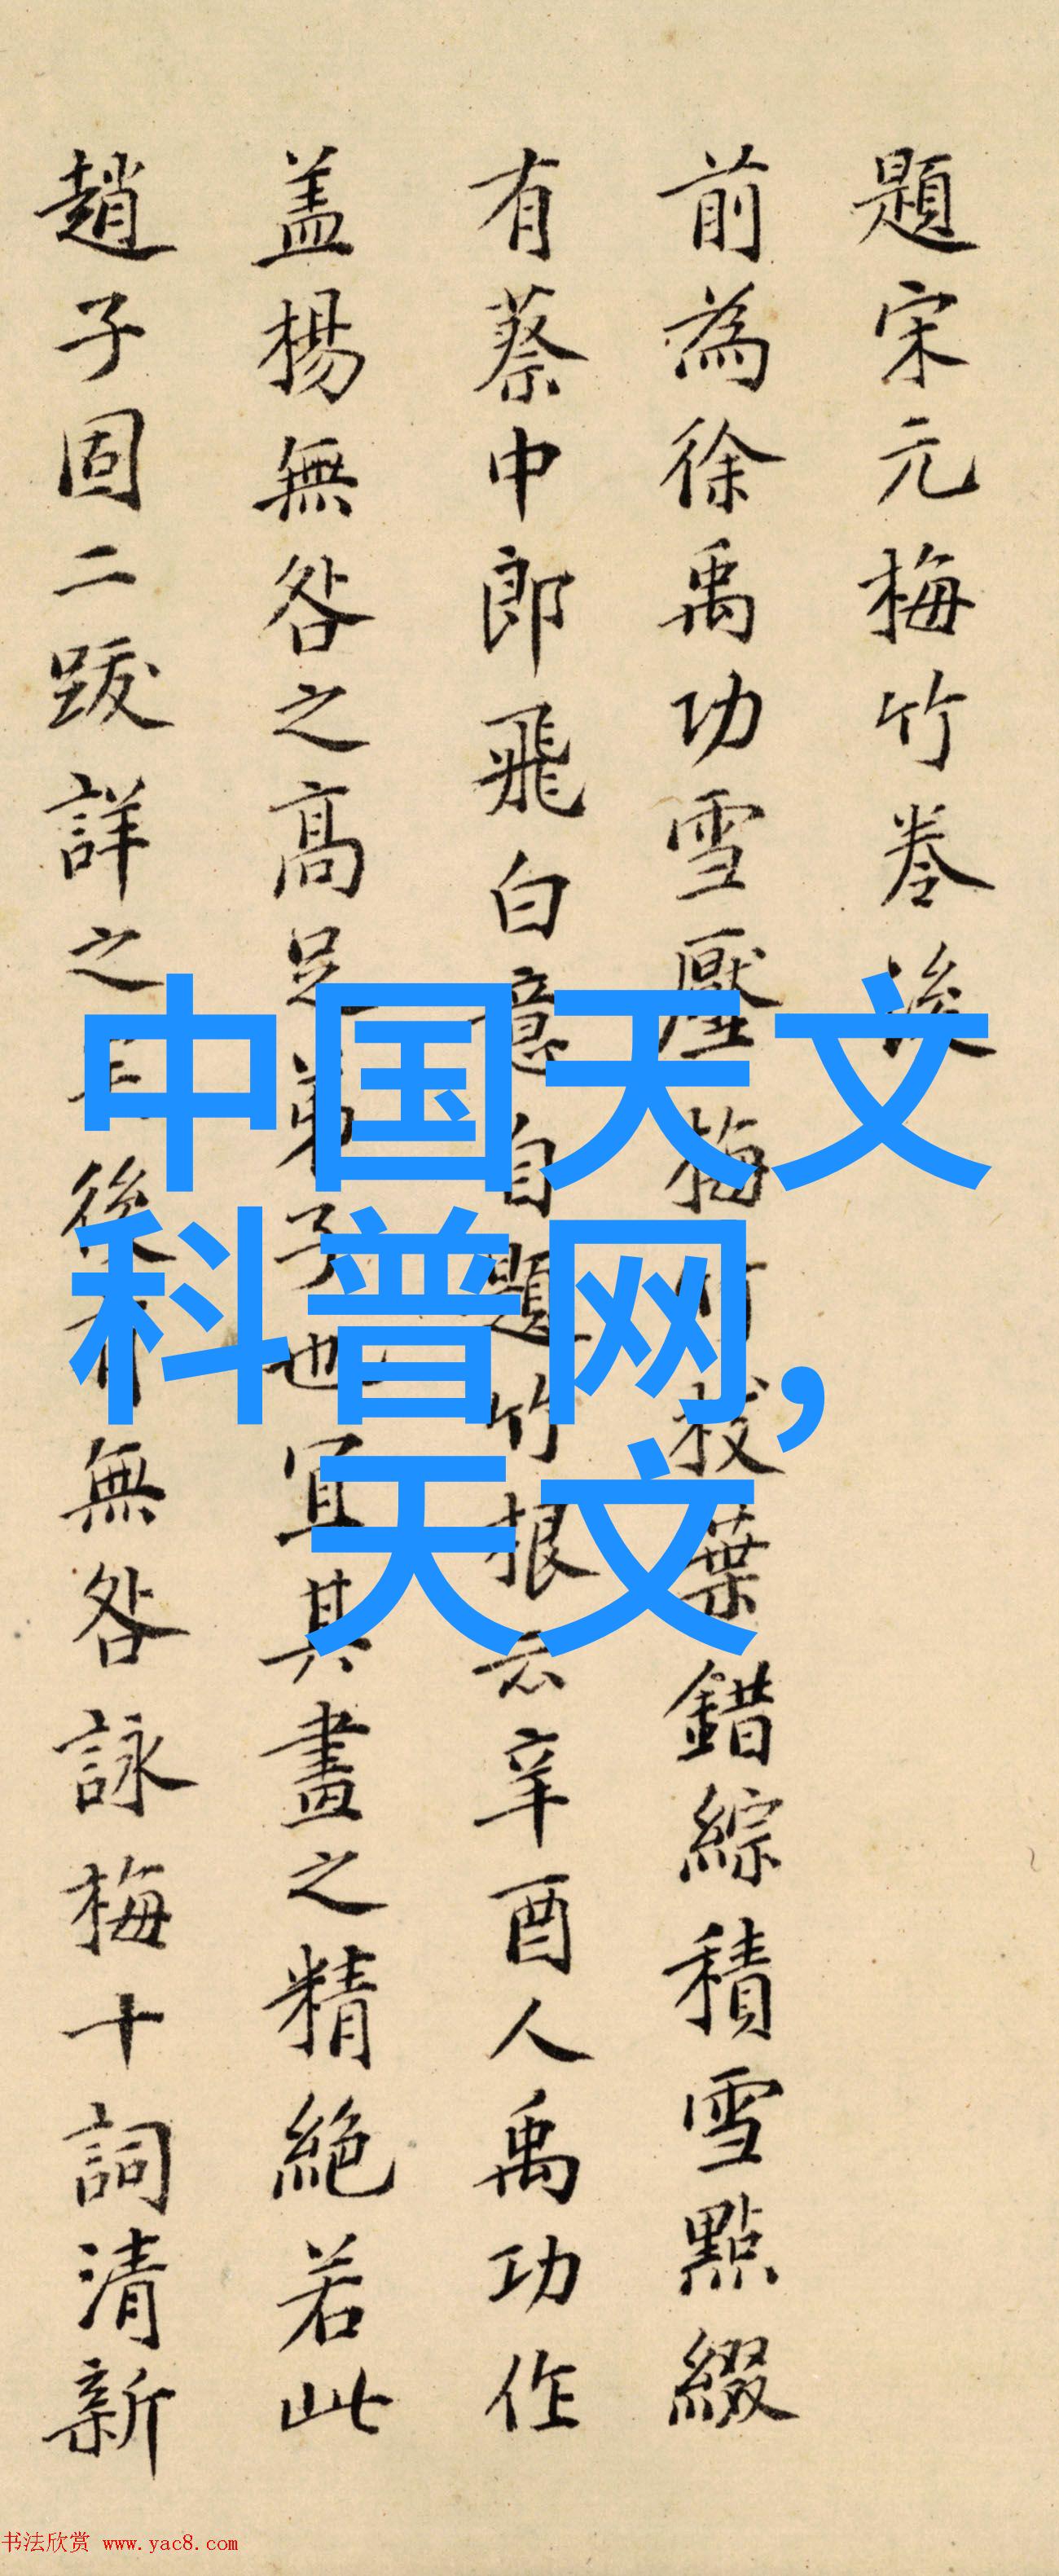 題宋元梅竹卷後
前為徐禹功雪壓梅竹枝葉錯綜積雪點綴
有蔡中郎飛白意自題竹根云辛酉人禹功作
盖楊無咎之高足弟子也宜其畫之精絕若此
趙子固二跋詳之後無咎詠梅十詞清新
中国天文
科普网,
天文
书法欣赏 www.yac8.com